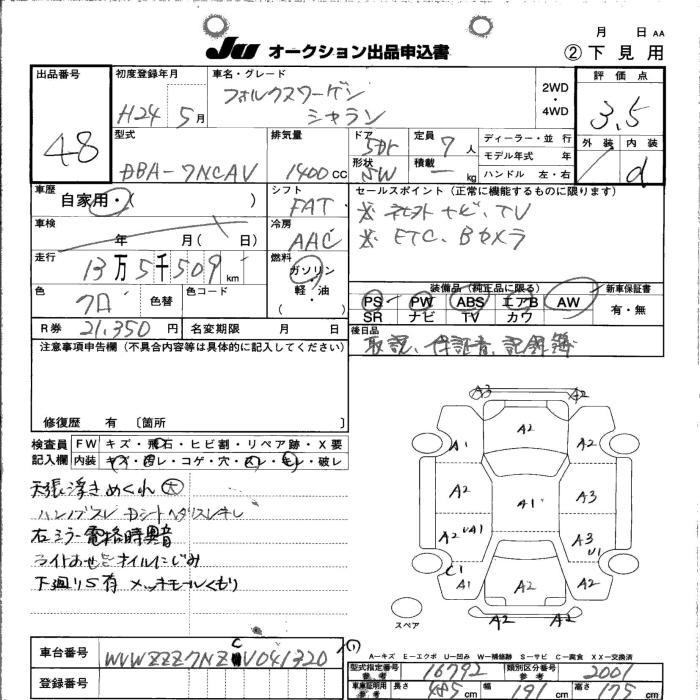 月 日 AA
JU オークション出品申込書
② 下見用
出品番号
48
初度登録年月
H24 5月
車名・グレード
フォルクスワーゲン
シャラン
2WD
・
4WD
評価点
3.5
外装 内装
d
型式
DBA-7NCAV
排気量
1400 cc
ドア
5Dr
形状
SW
定員 7 人
積載 ー kg
ディーラー・並行
モデル年式 年
ハンドル 左・右
車歴
自家用・( )
シフト
FAT
車検
年 月( 日)
冷房
AAC
走行
13万5千509 km
燃料
ガソリン
・
軽・油
( )
色
クロ
色替
色コード
R券 21,350 円
名変期限 月 日
セールスポイント(正常に機能するものに限ります)
※ 社外ナビ、TV
※ ETC、Bカメラ
装備品(純正品に限る)
PS PW ABS エアB AW
SR ナビ TV カワ
新車保証書
有・無
後日品
取説、保証書、記録簿
注意事項申告欄(不具合内容等は具体的に記入してください)
修復歴 有 〔箇所 〕
検査員
記入欄
FW キズ・飛石・ヒビ割・リペア跡・X要
内装 キズ・凹レ・コゲ・穴・スレ・モレ・破レ
天張浮きめくれ 大
ハンドブスレ
右ミラー電格時異音
オイルにじみ
下廻りS有 メッキモールくもり
A3 A2
A1 A2 A2
A2 A1 A3
A2 UA1 A3 U1
C1
A1 A2 A2
A2 A2
スペア
A-キズ E-エクボ U-凹み W-補修跡 S-サビ C-腐食 XX-交換済
車台番号
WVWZZZ7NZCV041320
(1)
登録番号
型式指定番号
参考
16792
類別区分番号
参考
2001
車庫証明用
参考
長さ 485 cm 幅 191 cm 高さ 175 cm